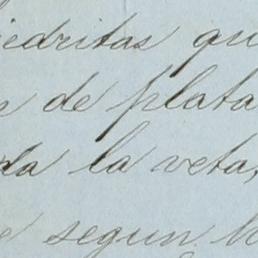 iedritas qu
de plata
da la veta,
segun